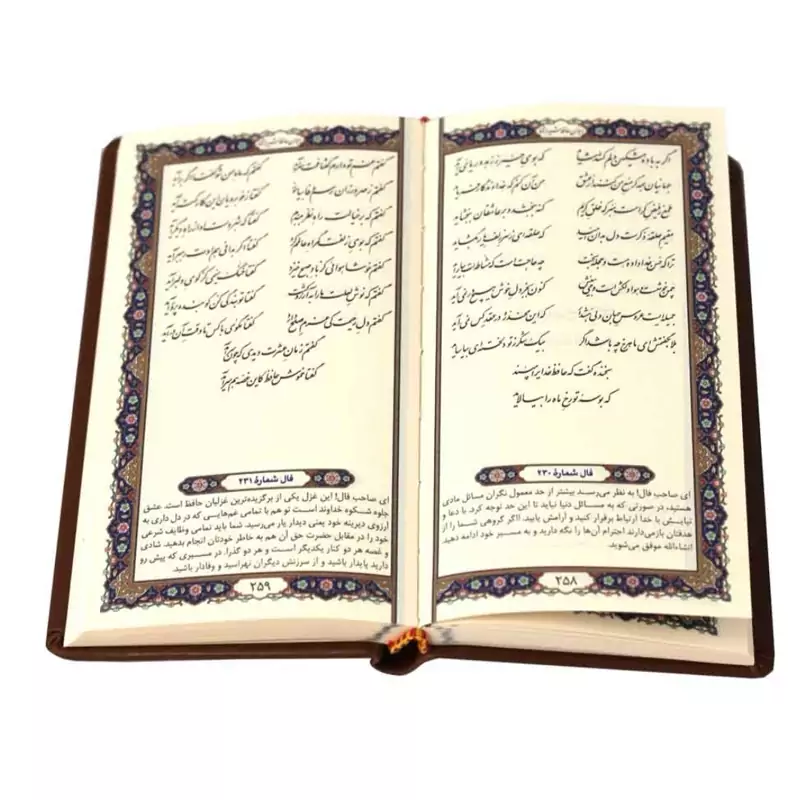 دیوان حافظ شیرازی
اگر به باده مشکین دلم کشد شاید که بوی خیر ز زهد ریا نمی‌آید
جهانیان همه گر منع من کنند از عشق من آن کنم که خداوندگار فرماید
طمع ز فیض کرامت مبر که خلق کریم گنه ببخشد و بر عاشقان ببخشاید
مقیم حلقه ذکرست دل بدان امید که حلقه‌ای ز سر زلف یار بگشاید
ترا که حسن خداداده هست و حجله بخت چه حاجت است که مشاطه‌ات بیاراید
چمن خوشست و هوا دلکش است و می بی‌غش کنون بجز دل خوش هیچ در نمی‌باید
جمیله‌ایست عروس جهان ولی هش دار که این مخدره در عقد کس نمی‌آید
بلابه گفتمش ای ماهرخ چه باشد اگر بیک شکر ز تو دلخسته‌ای بیاساید
بخنده گفت که حافظ خدایرا مپسند
که بوسه تو رخ ماه را بیالاید
فال شمارهٔ ۲۳۰
ای صاحب فال! به نظر می‌رسد بیشتر از حد معمول نگران مسائل مادی
هستید، در صورتی که به مسائل دنیا نباید تا این حد توجه کرد. با دعا و
نیایش با خدا ارتباط برقرار کنید و آرامش یابید. اگر گروهی شما را از
هدفتان بازمی‌دارند احترام آن‌ها را نگه دارید و به مسیر خود ادامه دهید.
انشاءالله موفق می‌شوید.
۲۵۸
دیوان حافظ شیرازی
گفتم غم تو دارم گفتا غمت سرآید گفتم که ماه من شو گفتا اگر برآید
گفتم ز مهرورزان رسم وفا بیاموز گفتا ز خوبرویان این کار کمتر آید
گفتم که بر خیالت راه نظر ببندم گفتا که شبروست او از راه دیگر آید
گفتم که بوی زلفت گمراه عالمم کرد گفتا اگر بدانی هم اوت رهبر آید
گفتم خوشا هوایی کز باد صبح خیزد گفتا خنک نسیمی کز کوی دلبر آید
گفتم که نوش لعلت ما را به آرزو کشت گفتا تو بندگی کن کو بنده‌پرور آید
گفتم دل رحیمت کی عزم صلح دارد گفتا مگوی با کس تا وقت آن درآید
گفتم زمان عشرت دیدی که چون سرآمد
گفتا خموش حافظ کاین غصه هم سرآید
فال شمارهٔ ۲۳۱
ای صاحب فال! این غزل یکی از برگزیده‌ترین غزلیان حافظ است. عشق
جلوه شکوه خداوند است تو هم با تمامی غم‌هایی که در دل داری به
آرزوی دیرینه خود یعنی دیدار یار می‌رسید. شما باید تمامی وظایف شرعی
خود را در مقابل حضرت حق آن هم به خاطر خودتان انجام بدهید. شادی
و غصه هر دو کنار یکدیگر است و هر دو گذرا. در مسیری که پیش رو
دارید پایدار باشید و از سرزنش دیگران نهراسید و وفادار باشید.
۲۵۹